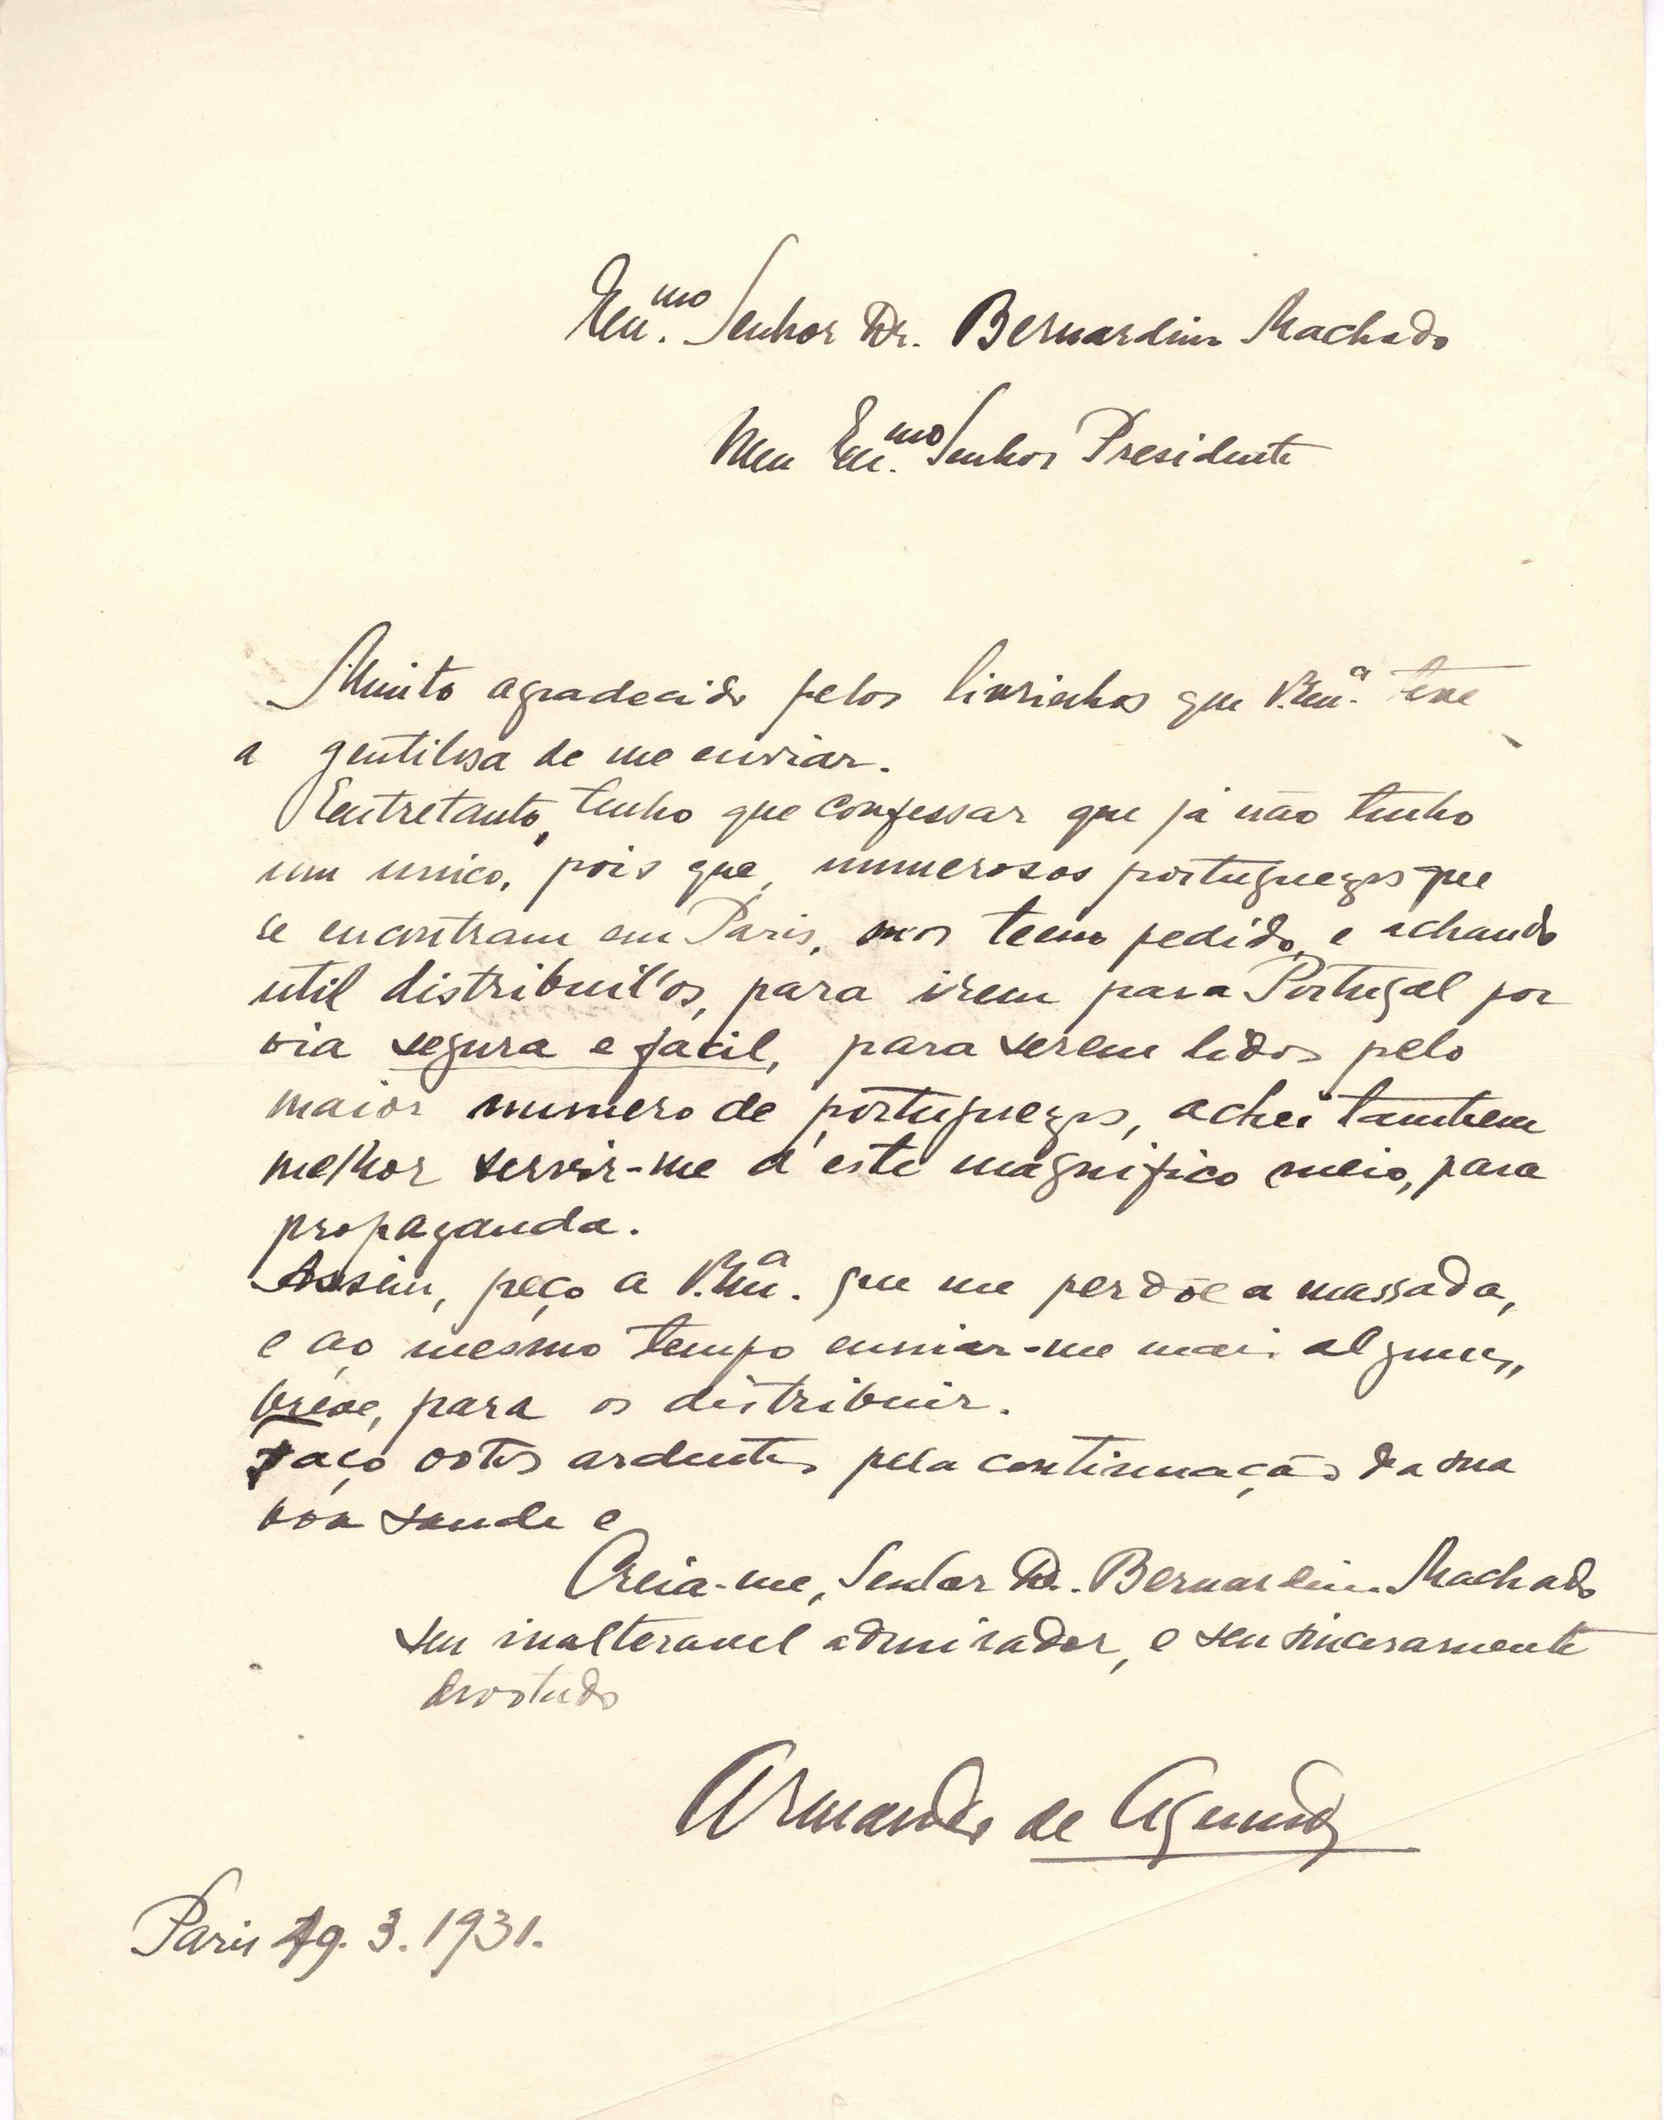 Exmo. Senhor Dr. Bernardino Machado
Meu Exmo. Senhor Presidente
Muito agradecido pelos livrinhos que V.Exa. teve
a gentilesa de me enviar.
Entretanto, tenho que confessar que já não tenho
um unico, pois que, numerosos portuguezes que
se encontram em Paris, m'os teem pedido, e achando
util distribuil'os, para irem para Portugal por
via segura e facil, para serem lidos pelo
maior numero de portuguezes, achei tambem
melhor servir-me d'este magnifico meio, para
propaganda.
Assim, peço a V.Exa. que me perdõe a massada,
e ao mesmo tempo enviar-me mais alguns,
breve, para os distribuir.
Faço votos ardentes pela continuação da sua
bôa saude e
Creia-me, Senhor Dr. Bernardino Machado
seu inalteravel admirador, e seu sinceramente
devotado
Armando de
Paris 19. 3. 1931.